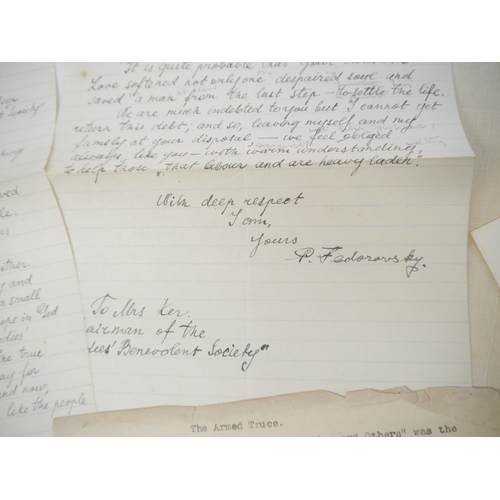 It is quite probable that your
Love softened not only one despaired soul and
saved "a man" from the last step — to settle the life.
We are much indebted to you but I cannot yet
return this debt; and so, leaving myself and my
family at your disposal — we feel obliged
always, like you — with warm understanding,
to help those „that labour and are heavy laden".
With deep respect
I am,
Yours
P. Fedorovsky.
To Mrs Ker.
airman of the
dies' Benevolent Society"
Society"
and
a small
in God
dies'
true
for
and now,
like the people
The Armed Truce.
and Others" was the